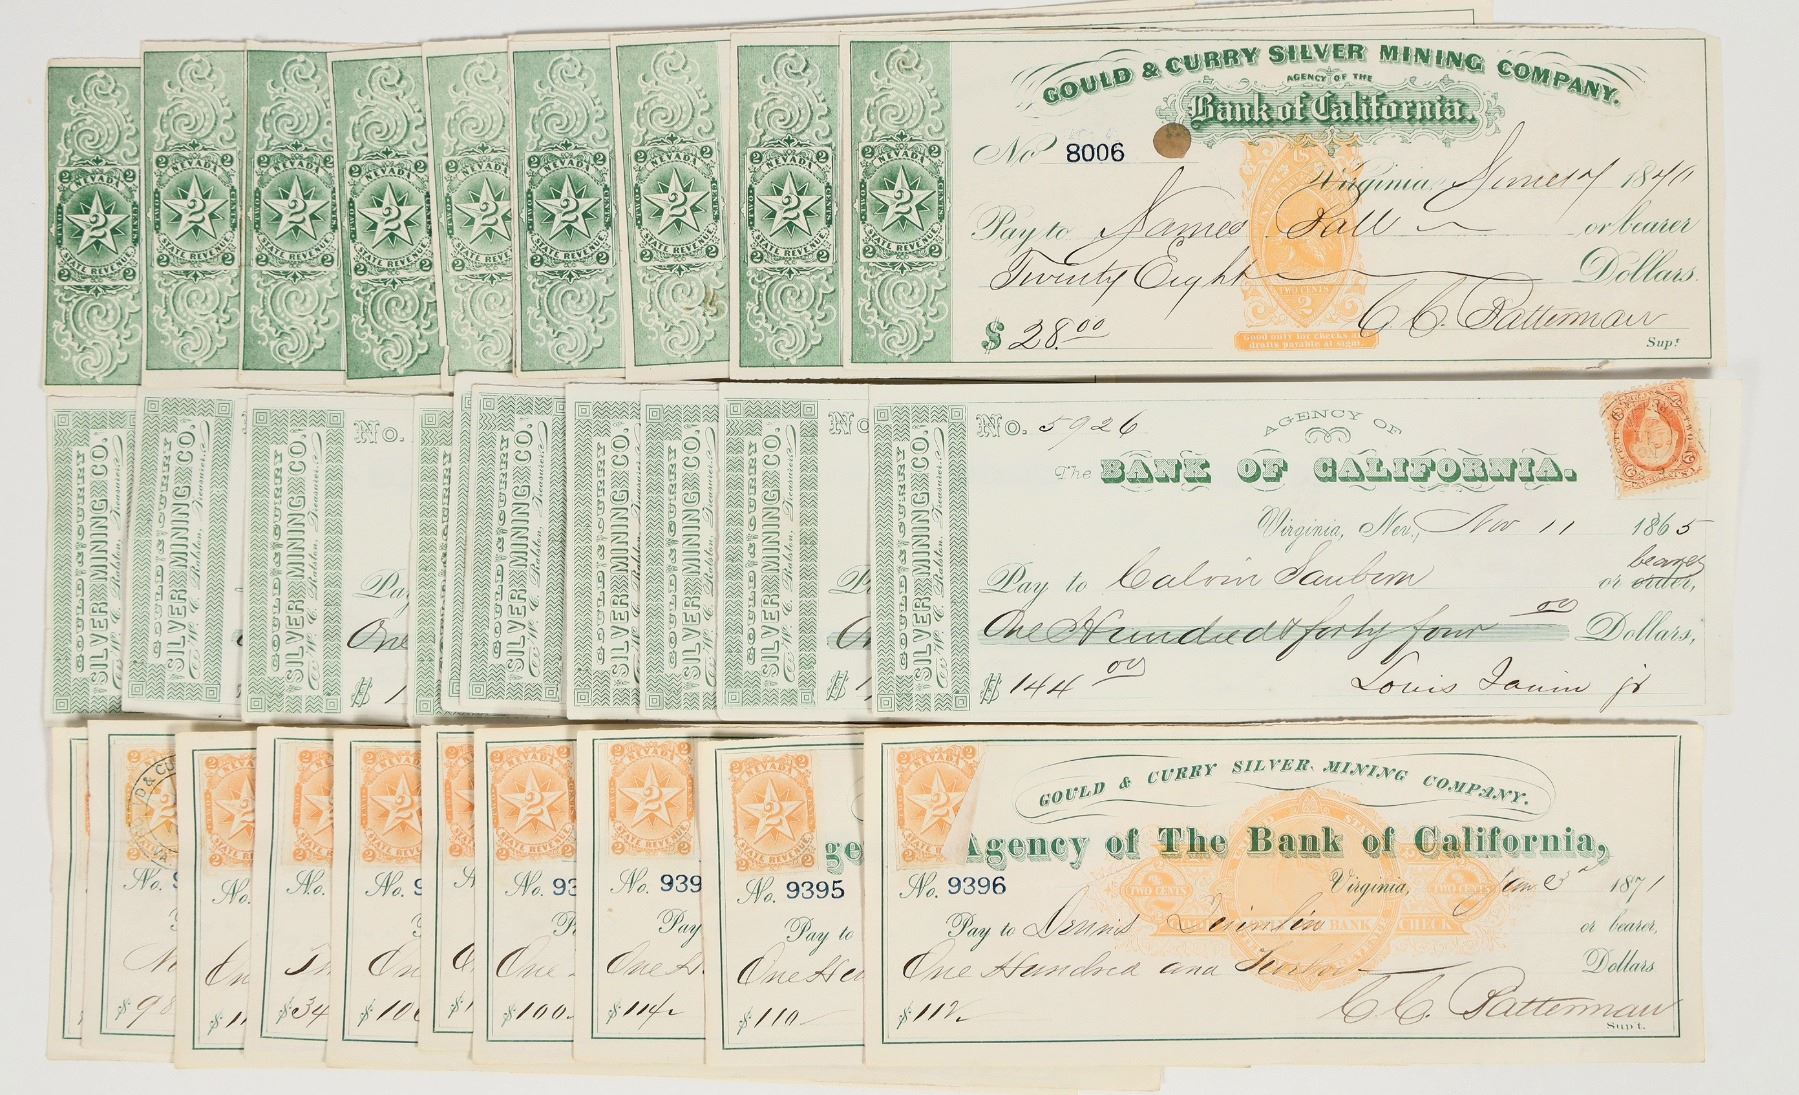 2 NEVADA 2
TWO 2 CENTS
STATE REVENUE
2 2
GOULD & CURRY SILVER MINING COMPANY.
AGENCY OF THE
Bank of California.
No 8006
Virginia,
Pay to James or bearer
Twenty Eight Dollars.
$ 28.00 C. C. Patterman
Sup.t
TWO CENTS
2
Good only for checks &
drafts payable at sight.
GOULD & CURRY
SILVER MINING CO.
W. C. Ralston, Treasurer.
No. 5926
AGENCY OF
The BANK OF CALIFORNIA.
Virginia, Nev., Nov 11 1865
bearer
Pay to Calvin or order,
One Hundred & forty four 00 Dollars,
$ 144 00 Louis Janin jr
No.
Pay
One
$ 1
2 NEVADA 2
TWO 2 CENTS
STATE REVENUE
2 2
GOULD & CURRY SILVER MINING COMPANY.
Agency of The Bank of California,
No. 9396 Virginia, 1871
Pay to Dennis or bearer,
One Hundred and Twelve Dollars
$ 112 C. C. Patterman
Supt.
TWO CENTS
BANK CHECK
No. 9395
Pay to
One Hu
$ 110
No. 939
Pay
One H
$ 114
No. 93
One
$ 100
No. 9
$ 100
No.
$ 34
No.
$ 11
No. 9
$ 98